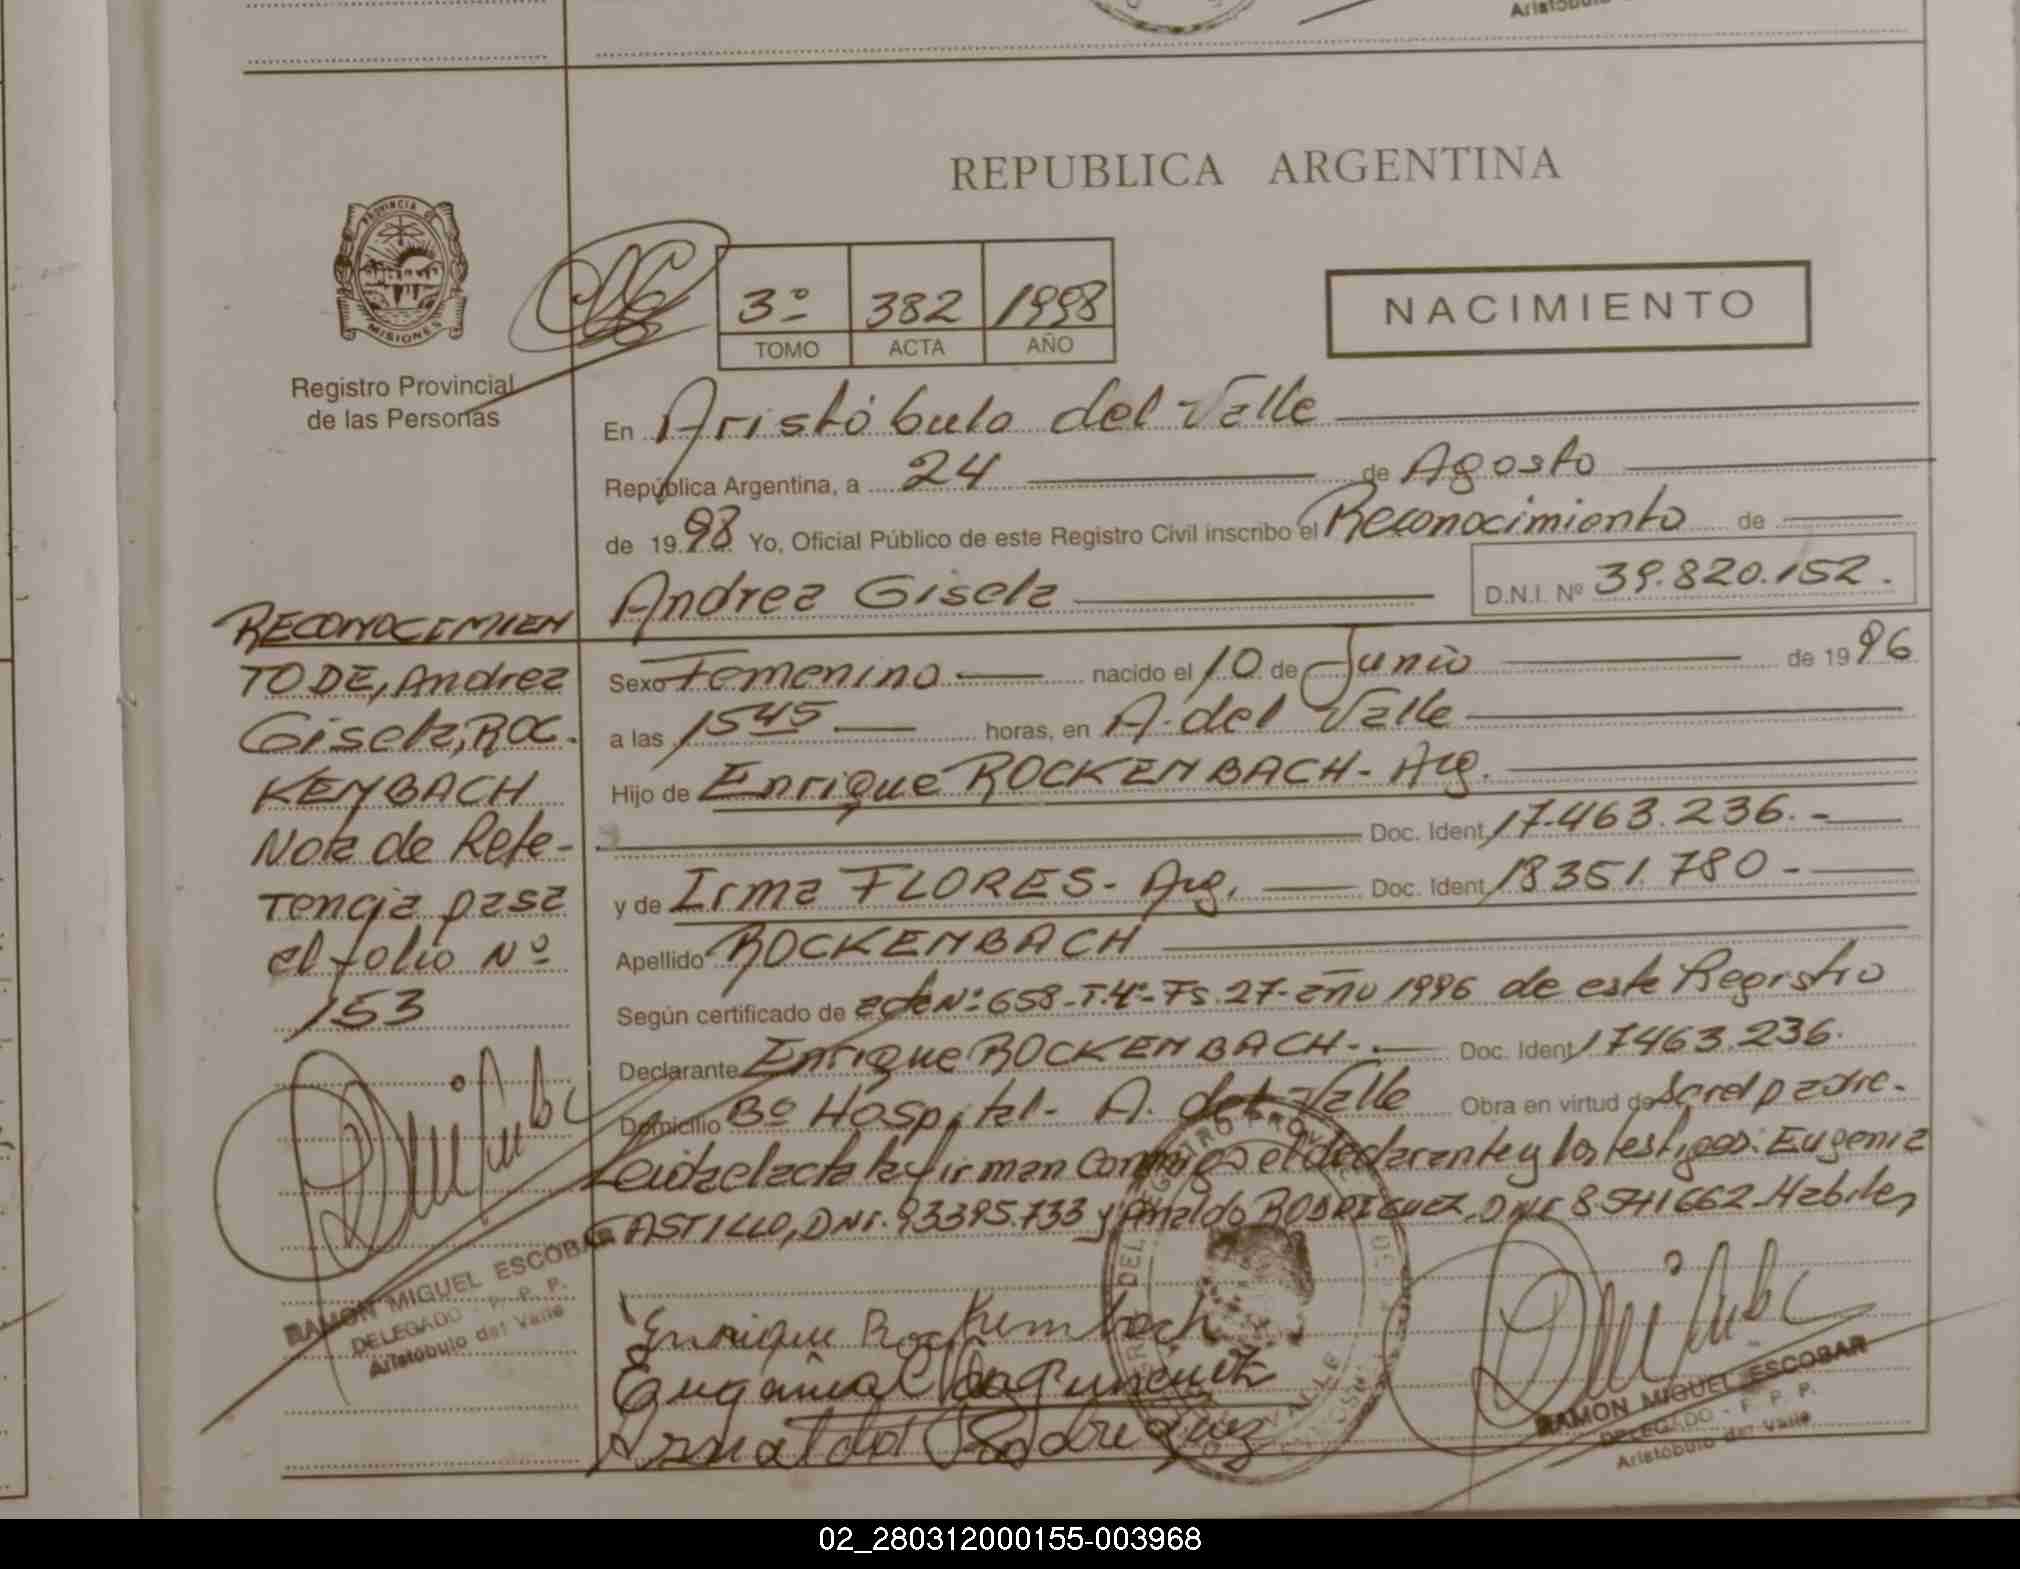 Aristóbulo
REPUBLICA ARGENTINA
PROVINCIA DE
MISIONES
Registro Provincial
de las Personas
3º 382 1998
TOMO ACTA AÑO
NACIMIENTO
En Aristóbulo del Valle
República Argentina, a 24 de Agosto
de 1998 Yo, Oficial Público de este Registro Civil inscribo el Reconocimiento de
Andrea Gisela D.N.I. Nº 39.820.152.
Sexo Femenino nacido el 10 de Junio de 1996
a las 15 45 horas, en A. del Valle
Hijo de Enrique ROCKENBACH - Arg.
Doc. Ident. 17.463.236.-
y de Irma FLORES - Arg. Doc. Ident. 18351.780 -
Apellido ROCKENBACH
Según certificado de acta Nº 658 - T.4º - Fs. 27 - año 1996 de este Registro
Declarante Enrique ROCKENBACH - . Doc. Ident. 17463.236.
Domicilio Bº Hospital - A. del Valle Obra en virtud de Ser el padre -
Leida el acta la firman conmigo el declarante y los testigos: Eugenia
CASTILLO, DNI. 93395.733 y Arnaldo RODRIGUEZ, DNI 8.541662 - Habiles,
Enrique Rockembach
Arnaldo Rodriguez
RAMON MIGUEL ESCOBAR
DELEGADO - P. P. P.
Aristóbulo del Valle
RECONOCIMIEN
TO DE, Andrea
Gisela, ROC.
KENBACH
Nota de Refe-
rencia pasa
el folio Nº
153
RAMON MIGUEL ESCOBAR
DELEGADO - P. P. P.
Aristóbulo del Valle
02_280312000155-003968